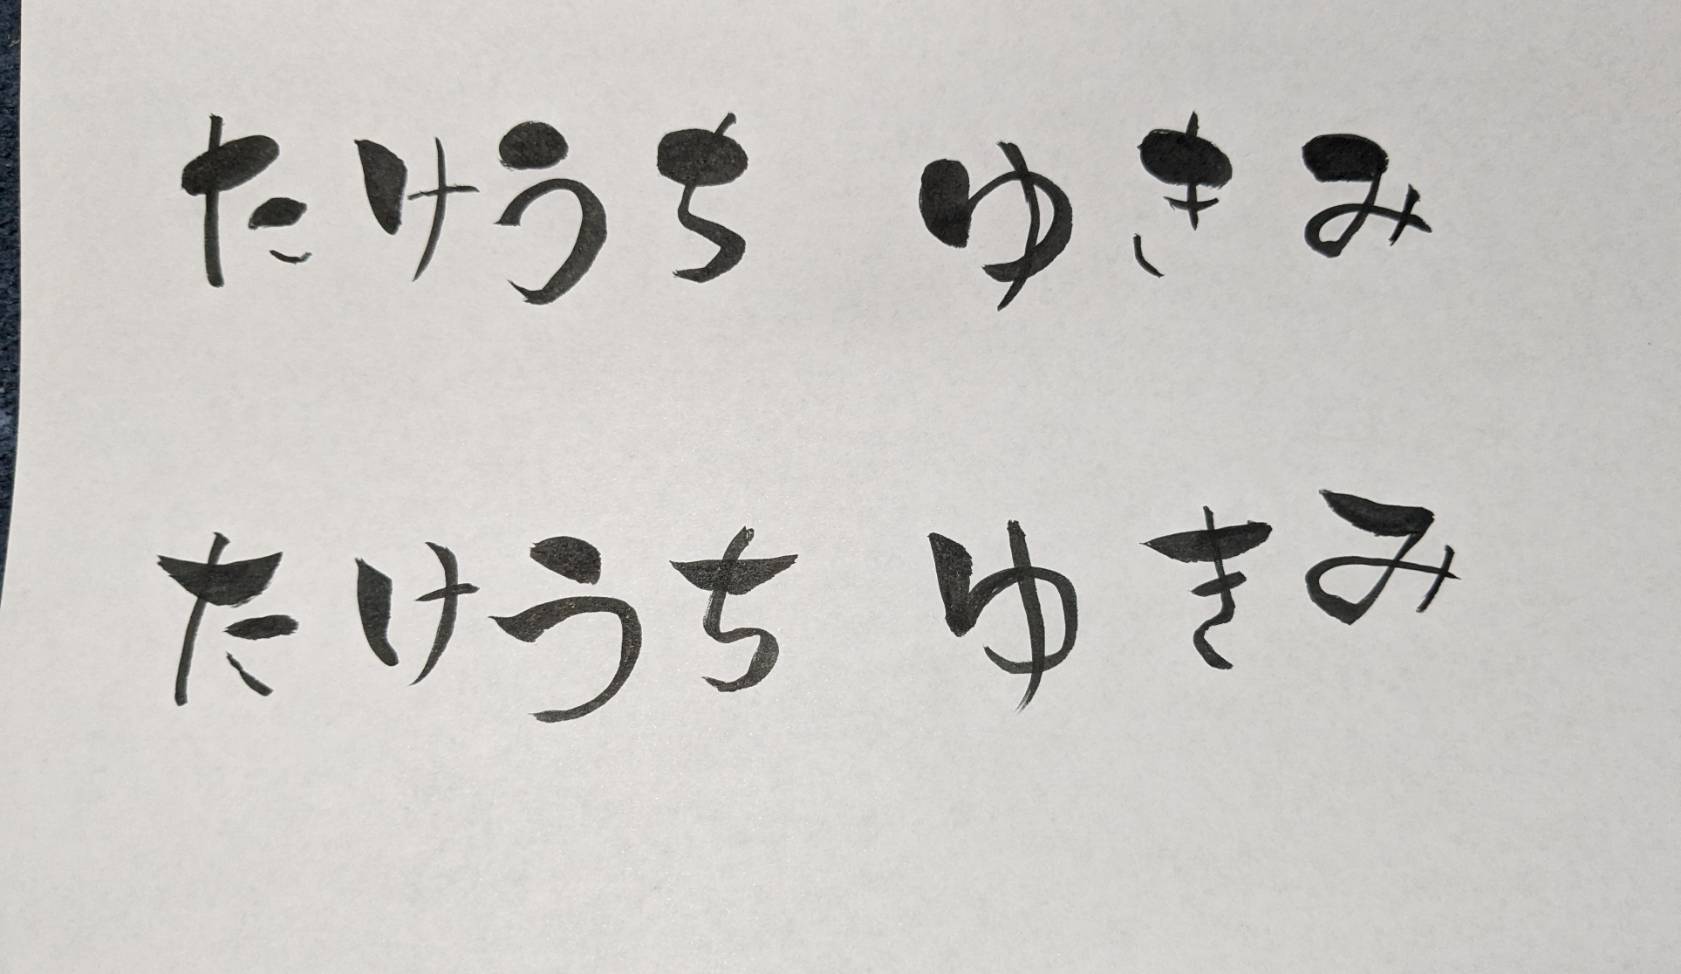 たけうち ゆきみ
たけうち ゆきみ